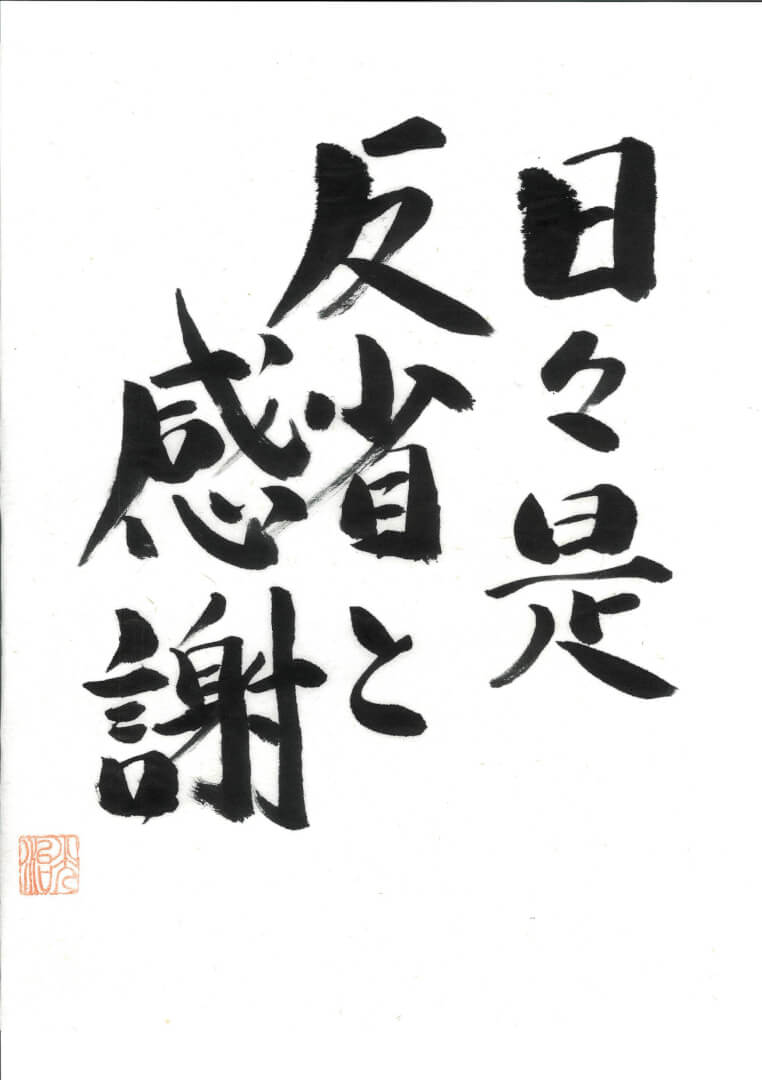 日々是
反省と
感謝